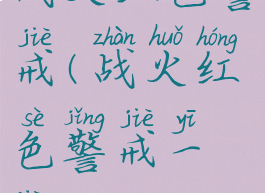 jiè zhàn huǒ hóng
戒(战火红
sè jǐng jiè yī
色警戒一